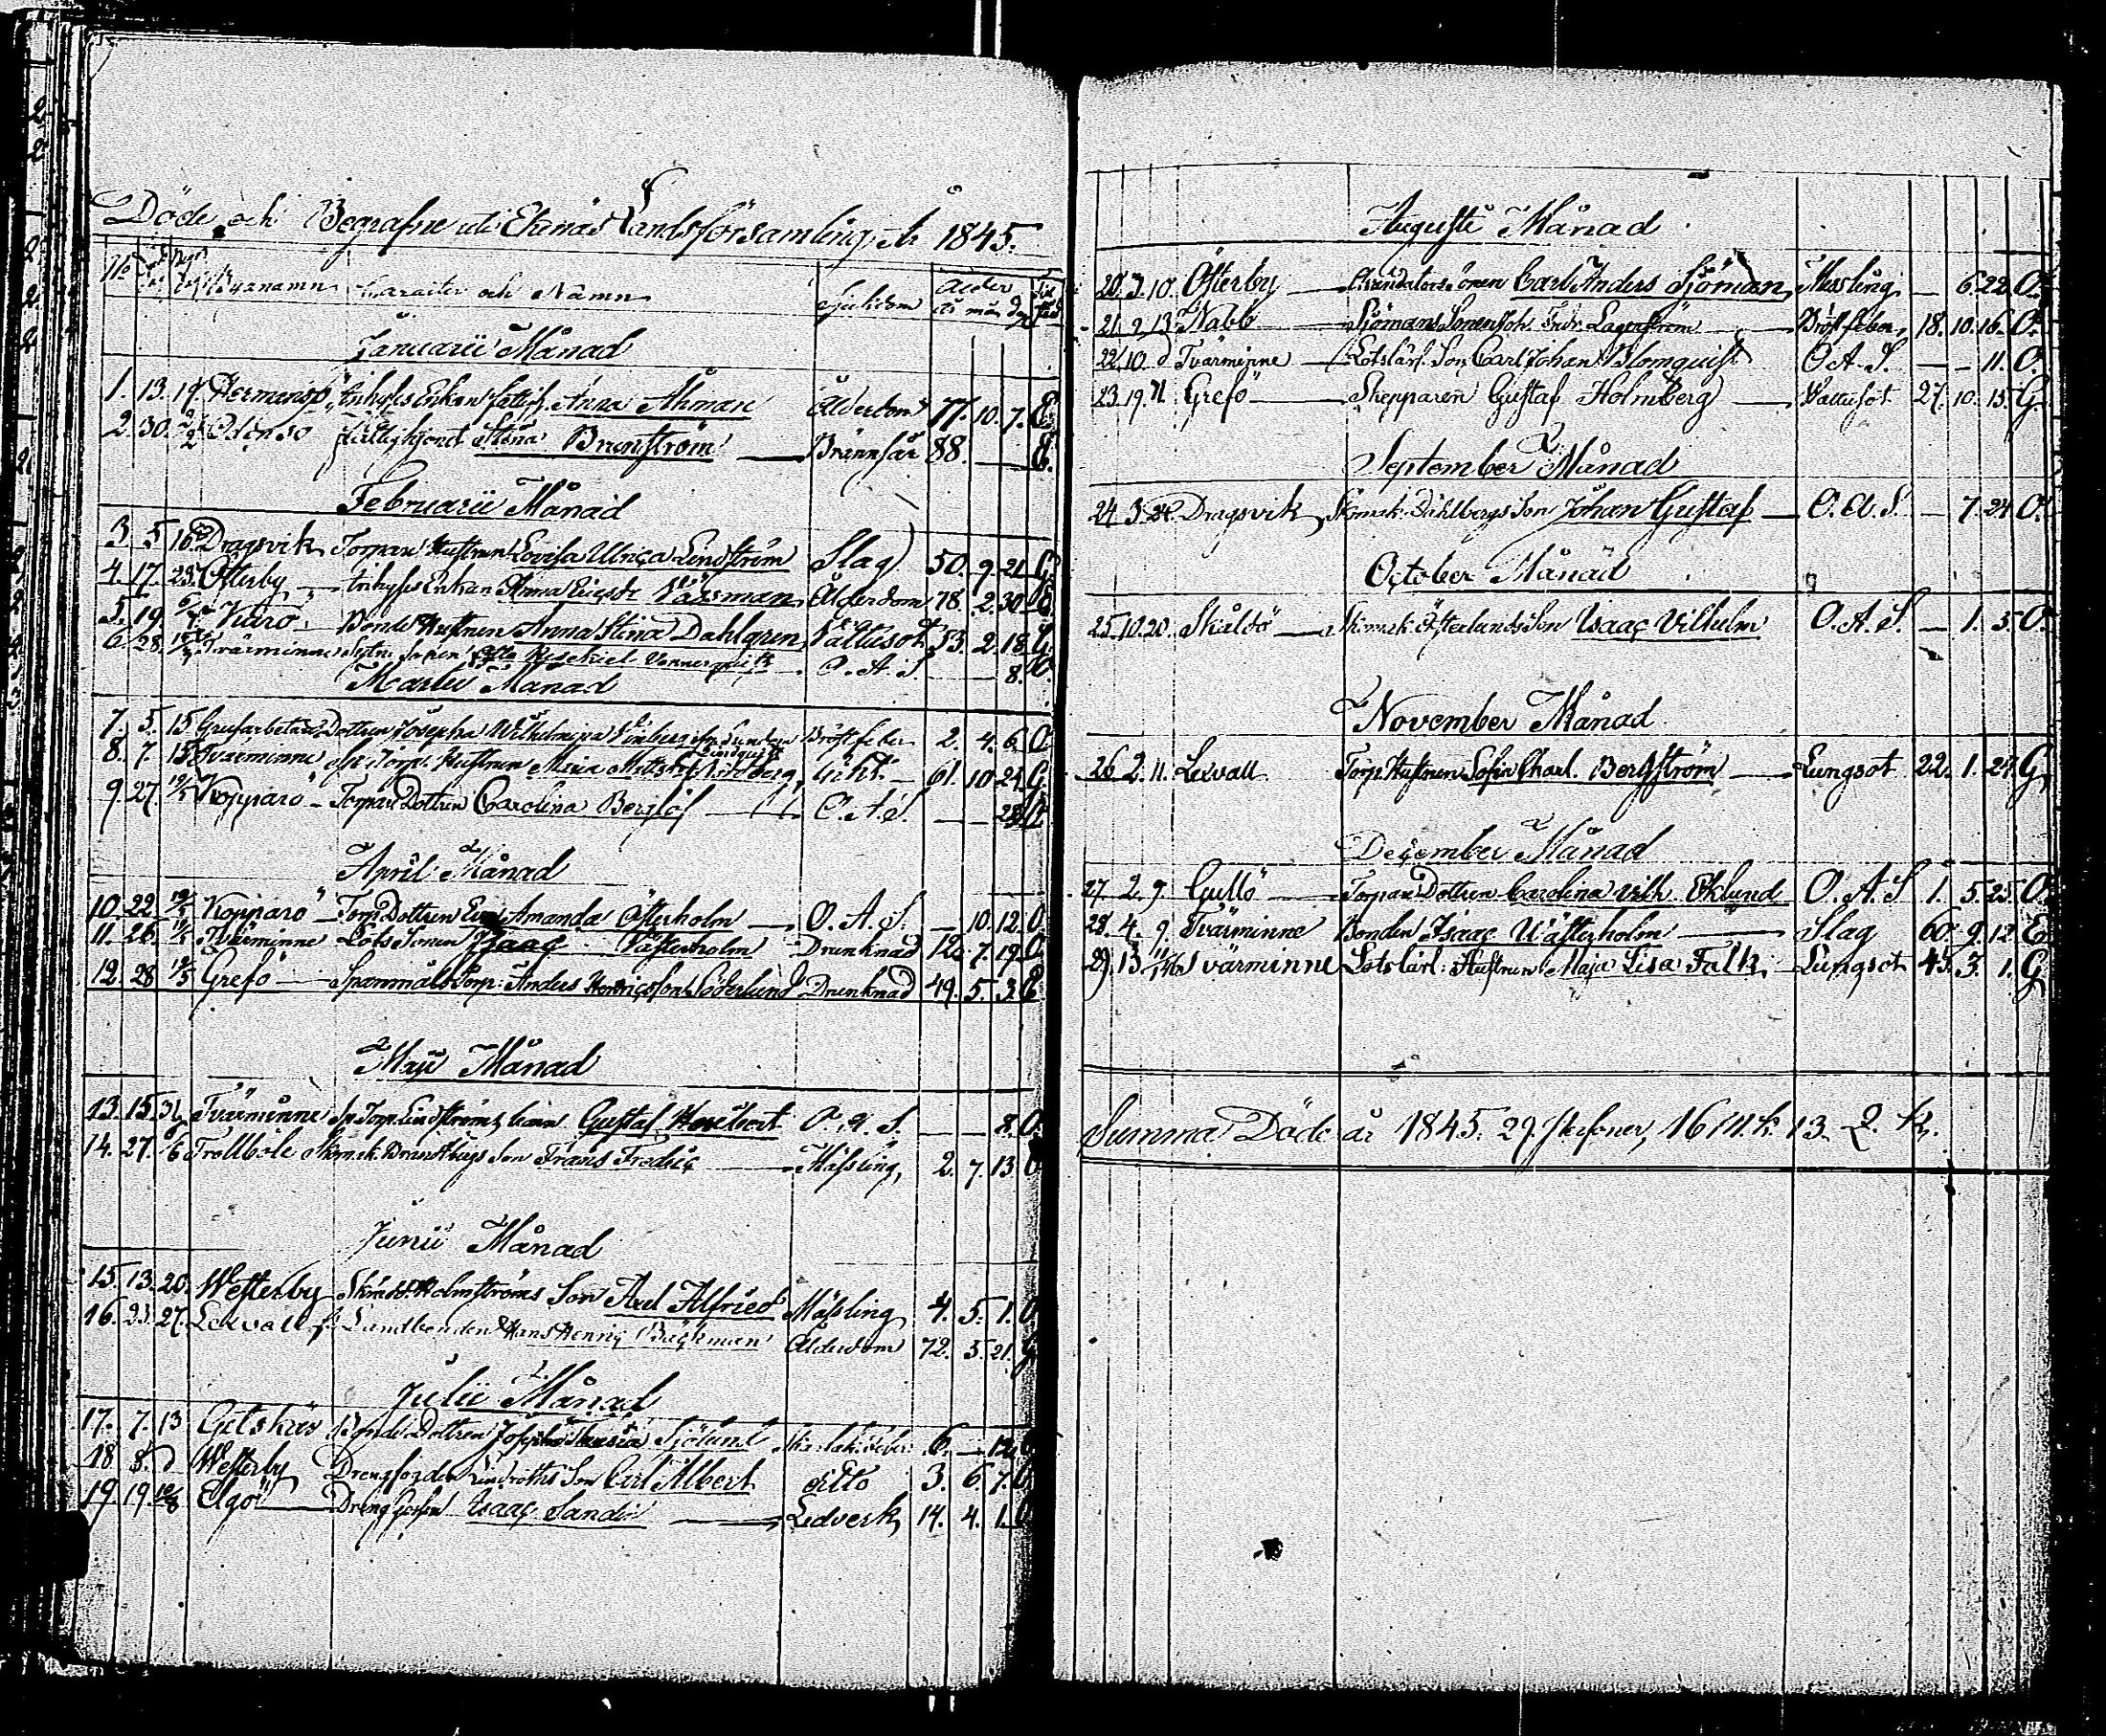 Döde och Begrafne uti Ekenäs Landsförsamling År 1845.
No Bynamn Caracter och Namn Sjukdom Ålder år mån dag
Januarii Månad
1. 13. 19. Hermansö Enkan Anna Åhman Ålderdom 77. 10. 7. E.
2. 30. 2/2 Odensö Stina Brunström Brännsår 88. E.
Februarii Månad
3 5 16 Dragsvik Torpare Hustrun Lovisa Ulrica Lindström Slag 50. 9. 21 G.
4. 17. 23. Österby Inhyses Enkan Anna Ålderdom 78. 2. 30. E.
5. 19. Bonde Hustrun Anna Stina Dahlgren Vattusot 53. 2. 18. G.
6. 28. Tvärminne Sonen Hesekiel O. A. S. 8. O.
Martii Månad
7. 5. 15 Grufarbetare Dottren Josepha Wilhelmina Bröstfeber 2. 4. 6. O.
8. 7. 15 Tvärminne Torp. Hustrun Maria 61. 10 24 G.
9. 27. Kopparö Torpare Dottren Carolina Berglöf O. A. S. 28 O.
April Månad
10. 22. Kopparö Torp. Dottren Eva Amanda Österholm O. A. S. 10. 12. O.
11. 26. Tvärminne Lots Sonen Isaac Västerholm Drunknad 12. 7. 19. O.
12. 28 Grefö Torp. Anders Söderlund Drunknad 49. 5. 3. E.
Maji Månad
13. 15. Tvärminne Torp. Lindströms barn Gustaf Heribert O. A. S. 8. O.
14. 27. Trollböle Skomak. Son Frans Fredric Mässling 2. 7. 13. O.
Junii Månad
15. 13. 20. Westerby Holmströms Son Axel Alfried Mässling 4. 5. 1. O.
16. 23. 27. Lexvall Landbonden Hans Henric Bäckman Ålderdom 72. 5. 21. G.
Julii Månad
17. 7. 13 Gilskärs Bonde Dottren Josepha Sjölund Skarlak. Feber 6. 12. O.
18. 8. d Westerby Lindroths Son Carl Albert ditto 3. 6. 7. O.
19. 19. 10/8 Elgö Dreng Isaac Sandin Ledverk 14. 4. 1. O.
Augusti Månad
20. 3. 10. Österby Arrendators sonen Carl Anders Sjöman Messling 6. 22. O.
21. 9. 13. Nabb Sjömans Sonen Joh. Fredr. Lagerström Bröstfeber 18. 10. 16. O.
22. 10. d Tvärminne Lotslärl. Son Carl Johan Blomquist O. A. S. 11. O.
23. 19. 21. Grefö Skepparen Gustaf Holmberg Vattusot 27. 10. 15. G.
September Månad
24. 3. Dragsvik Skomak. Dahlbergs Son Johan Gustaf O. A. S. 7. 24 O.
October Månad
25. 10. 20. Skåldö Skomak. Österlunds Son Isaac Vilhelm O. A. S. 1. 5. O.
November Månad
26. 2. 11. Lexvall Torp. Hustrun Sofia Charl. Bergström Lungsot 22. 1. 27. G.
December Månad
27. 2. 9. Gullö Torpare Dottren Carolina Vilh. Eklund O. A. S 1. 5. 25. O.
28. 4. 9. Tvärminne Bonden Isaac Wästerholm Slag 60. 9. 12. E.
29. 13 Tvärminne Lotslärl. Hustrun Maja Lisa Falk Lungsot 43. 3. 1. G
Summa Döde år 1845. 29. Personer, 16 M. K. 13. Q. K.